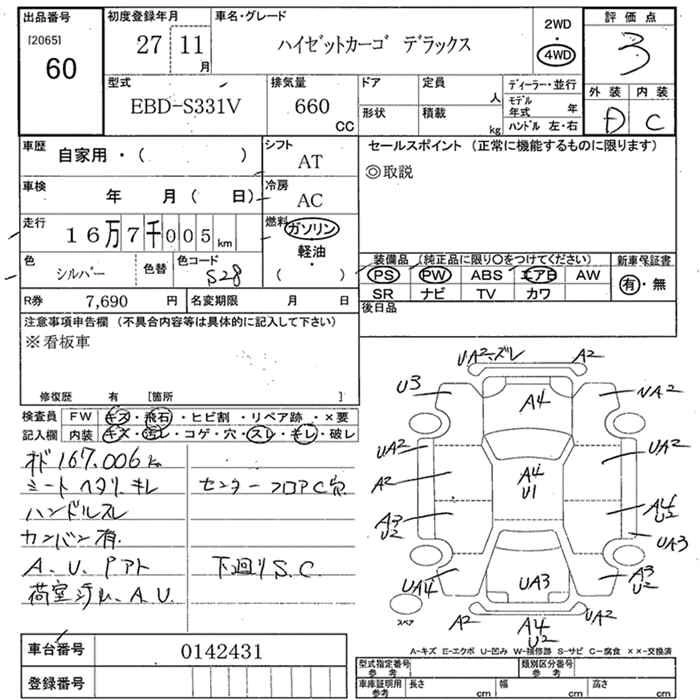 出品番号 初度登録年月 車名・グレード 2WD 評価点
[2065] 27 11月 ハイゼットカーゴ デラックス ・ 3
60 4WD
型式 排気量 ドア 定員 人 ディーラー・並行 外装 内装
EBD-S331V 660 CC 形状 積載 kg モデル年式 年 D C
ハンドル 左・右
車歴 自家用・( ) シフト AT セールスポイント (正常に機能するものに限ります)
◎取説
車検 年 月( 日) 冷房 AC
走行 16万7千005km 燃料 ガソリン
軽油・
( )
色 シルバー 色替 色コード S28
装備品 (純正品に限り○をつけてください) 新車保証書
PS PW ABS エアB AW 有・無
SR ナビ TV カワ
R券 7,690 円 名変期限 月 日
後日品
注意事項申告欄 (不具合内容等は具体的に記入して下さい)
※看板車
修復歴 有 [箇所 ]
検査員 FW キズ・飛石・ヒビ割・リペア跡・×要
記入欄 内装 キズ・汚レ・コゲ・穴・スレ・キレ・破レ
オド167,006k
シートヘタリ、キレ センターフロアC穴
ハンドルスレ
カンバン有
A、U、Pアト 下廻りS、C
荷室 A、U
UA2 ズレ A2
U3 A4 UA2
UA2 UA2
A2 A4
U1
A3
U2 A4
U2
UA3
UA4 UA3 A3
U2
スペア A2 A4
U2 UA2
A-キズ E-エクボ U-凹み W-補修跡 S-サビ C-腐食 ××-交換済
車台番号 0142431
登録番号
型式指定番号 参考 類別区分番号 参考
車庫証明用 参考 長さ cm 幅 cm 高さ cm